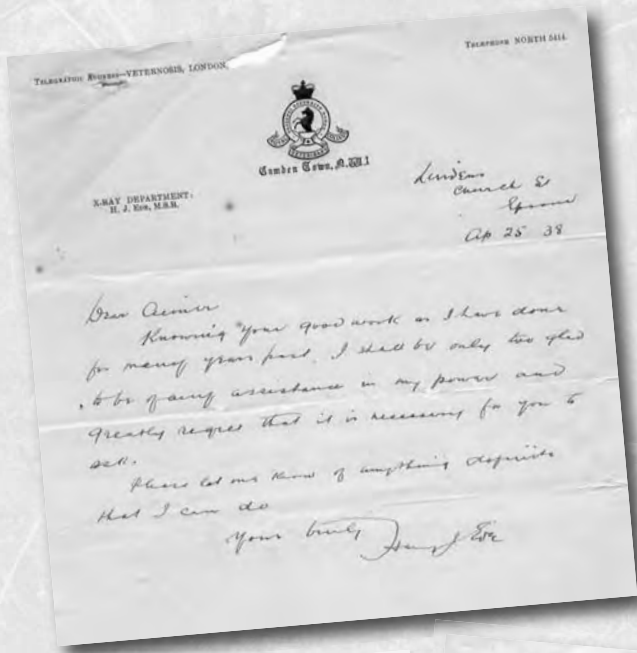 TELEPHONE NORTH 5414.
TELEGRAPHIC ADDRESS—VETERNOSIS, LONDON.
Camden Town, N.W.1
X-RAY DEPARTMENT:
H. J. EDE, M.S.R.
Lindens
Church St
Epsom
Ap 25 38
Dear
Knowing your good work as I have done
for many years past, I shall be only too glad
to be of any assistance in my power and
greatly regret that it is necessary for you to
ask.
Please let me know of anything definite
that I can do
Yours truly